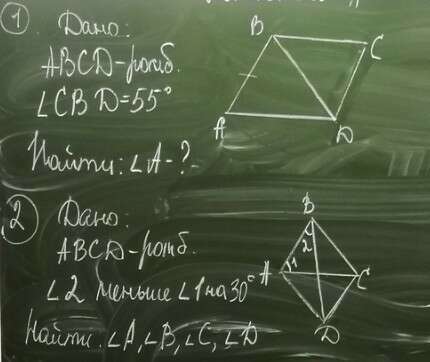 1 Дано:
ABCD-ромб.
∠CBD=55°
Найти: ∠A-?
B
C
A
D
2 Дано:
ABCD-ромб.
∠2 меньше ∠1 на 30°
Найти ∠A,∠B,∠C,∠D
B
2
A
1
C
D